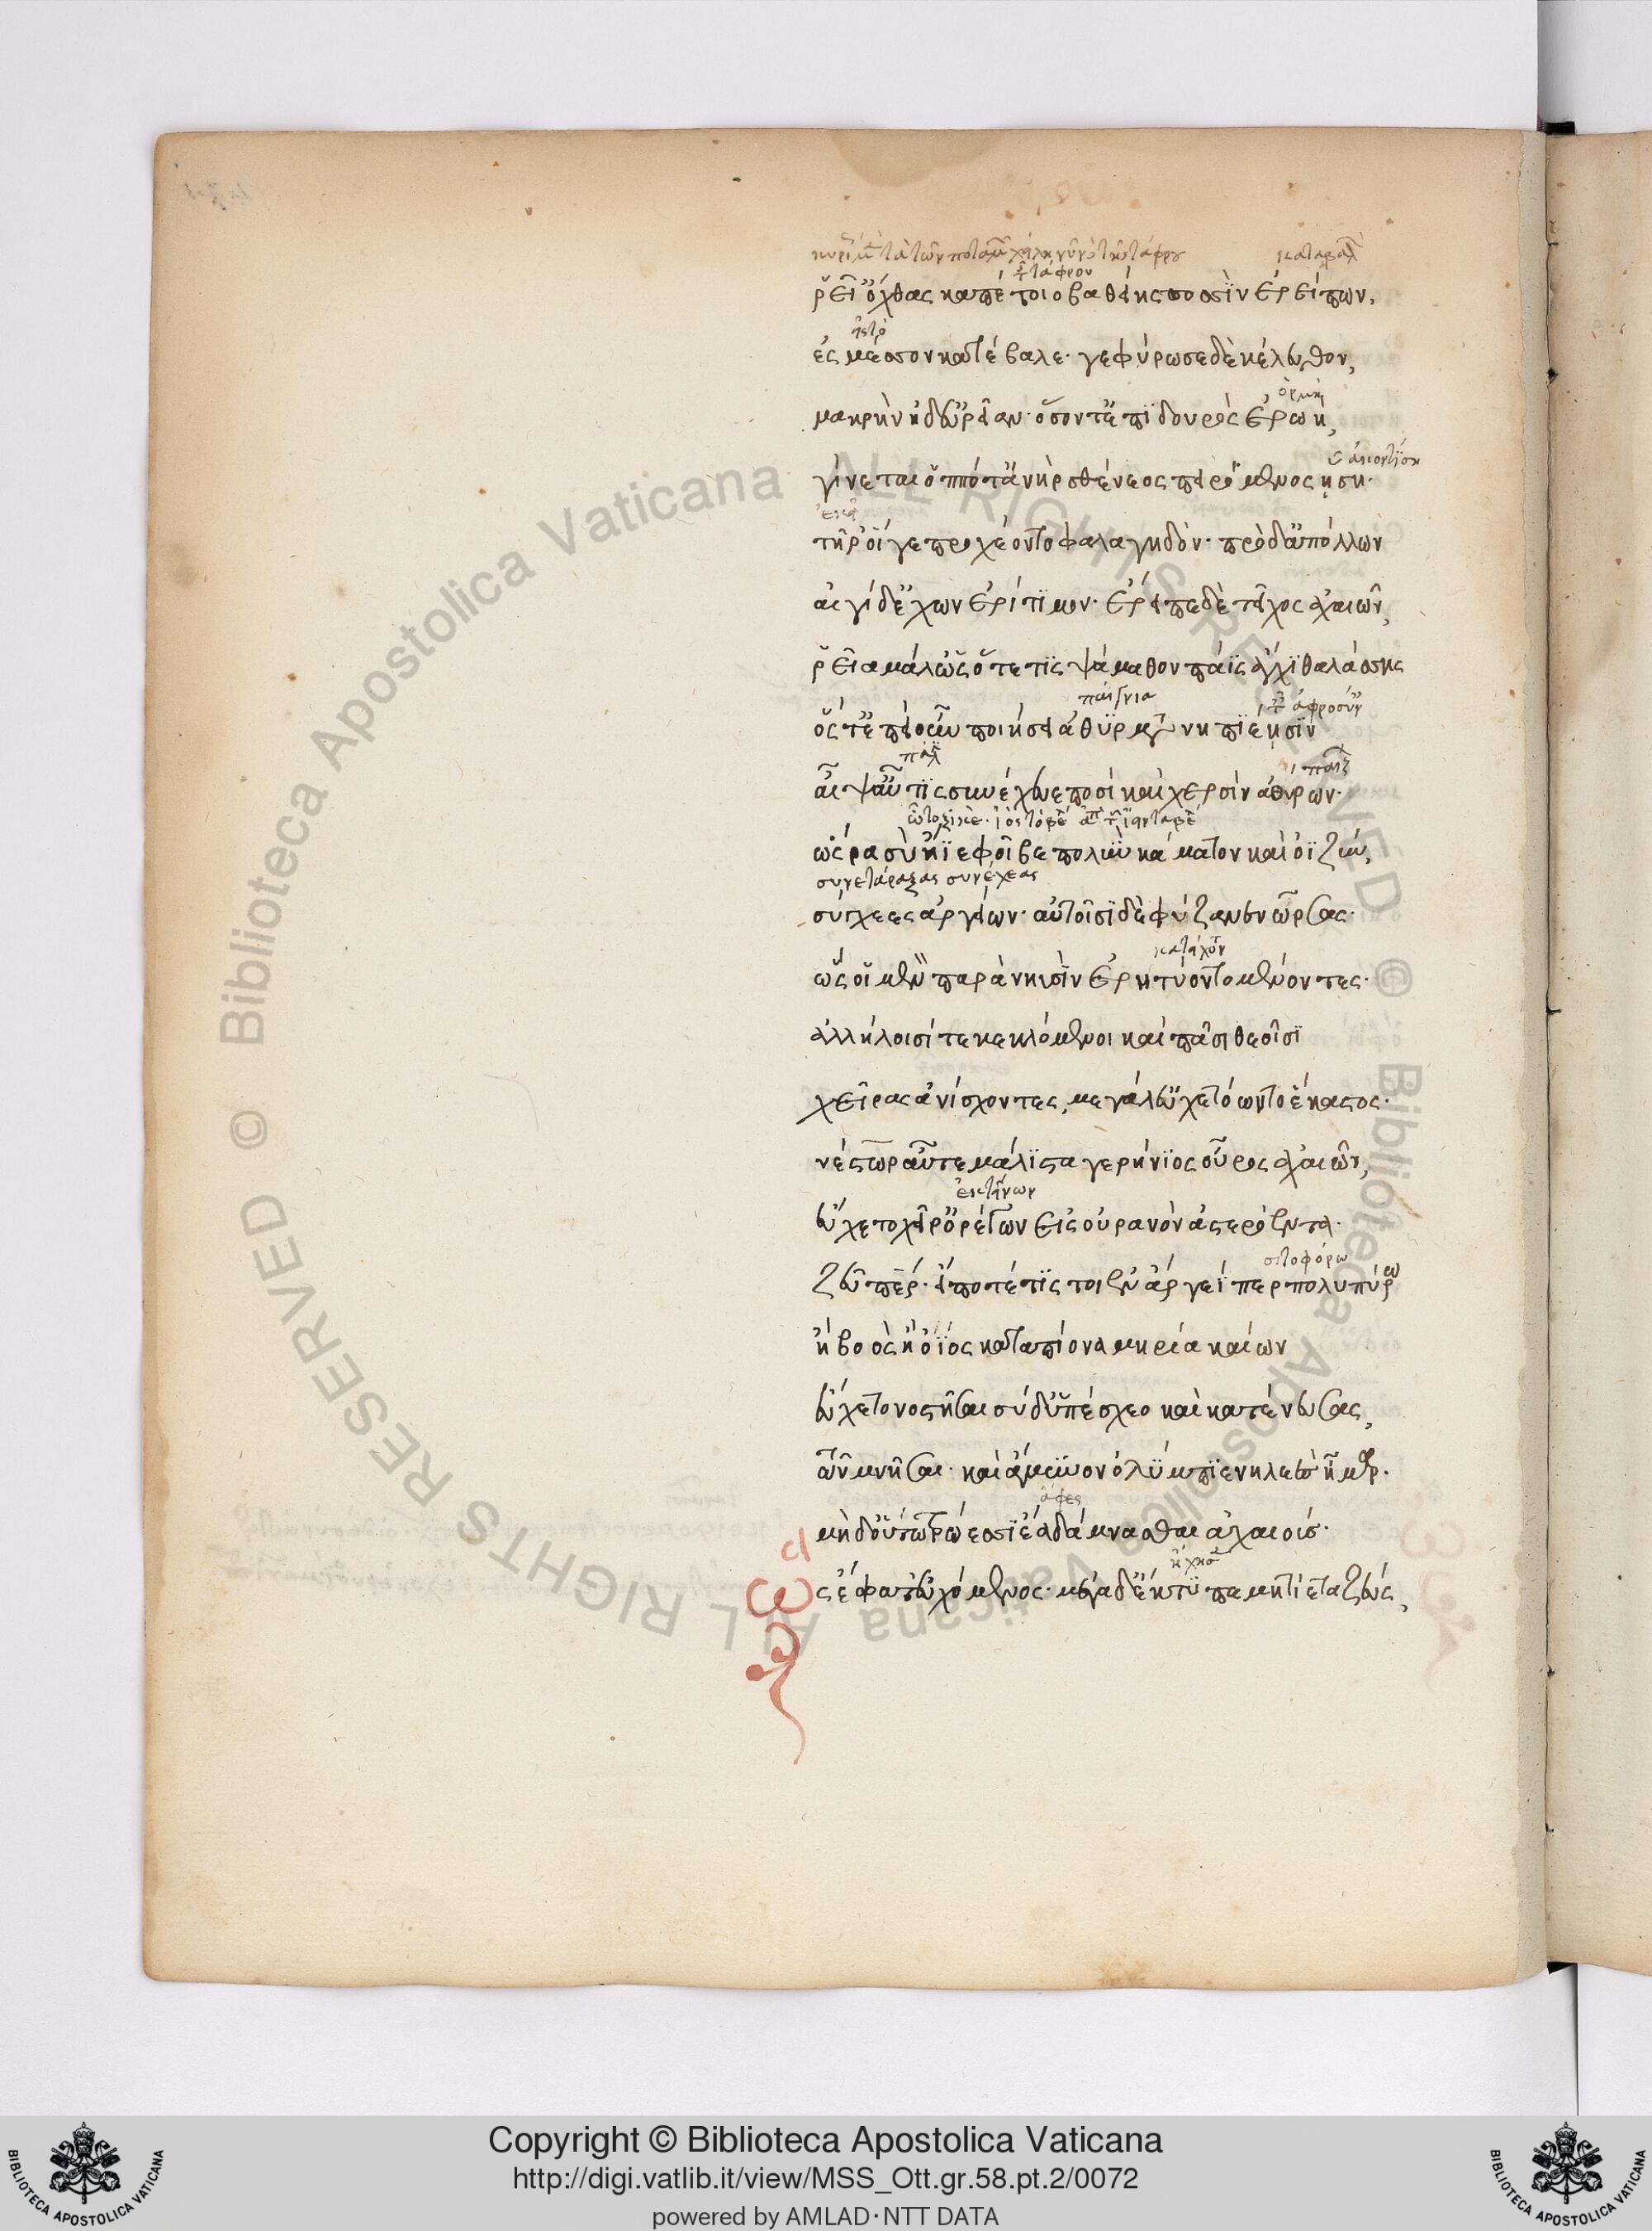 ῥεῖ' ὄχθας καπέτοιο βαθείης ποσσὶν ἐρείπων,
ἐς μέσσον κατέβαλε· γεφύρωσε δὲ κέλευθον,
μακρὴν ἠδ' εὐρεῖαν· ὅσον τ' ἐπὶ δουρὸς ἐρωὴ,
γίνεται ὁππότ' ἀνὴρ σθένεος πειρώμενος ᾗσιν·
τῇ ῥ' οἵ γε προχέοντο φαλαγγηδόν· πρὸ δ' ἀπόλλων
αἰγίδ' ἔχων ἐρίτιμον· ἔρειπε δὲ τεῖχος ἀχαιῶν,
ῥεῖα μάλ' ὡς ὅτε τις ψάμαθον πάϊς ἄγχι θαλάσσης
ὅς τ' ἐπεὶ οὖν ποιήσει ἀθύρματα νηπιέῃσιν
ἂψ αὖτις συνέχευε ποσὶ καὶ χερσὶν ἀθύρων·
ὥς ῥα σὺ ἤϊε φοῖβε πολὺν κάματον καὶ ὀϊζὺν,
συνετάραξας συνέχεας
σύγχεες ἀργείων· αὐτοῖσι δὲ φύζαν ἐνῶρσας·
ὣς οἱ μὲν παρὰ νηυσὶν ἐρητύοντο μένοντες·
ἀλλήλοισί τε κεκλόμενοι καὶ πᾶσι θεοῖσι
χεῖρας ἀνίσχοντες, μεγάλ' εὐχετόωντο ἕκαστος·
νέστωρ αὖτε μάλιστα γερήνιος οὖρος ἀχαιῶν,
εὔχετο χεῖρ' ὀρέγων εἰς οὐρανὸν ἀστερόεντα·
σιτοφόρω
ζεῦ πάτερ· εἴποτέ τίς τοι ἐν ἄργεΐ περ πολυπύρω
ἢ βοὸς ἢ οἰὸς κατὰ πίονα μηρία καίων
εὔχετο νοστῆσαι σὺ δ' ὑπέσχεο καὶ κατένευσας,
τῶν μνῆσαι· καὶ ἄμυνον ὀλύμπιε νηλεὲς ἦμαρ·
ἄφες
μὴ δ' οὕτω τρώεσσι ἔα δάμνασθαι ἀχαιούς·
ὣς ἔφατ' εὐχόμενος· μέγα δ' ἔκτυπε μητίετα ζεύς,
Copyright © Biblioteca Apostolica Vaticana
http://digi.vatlib.it/view/MSS_Ott.gr.58.pt.2/0072
powered by AMLAD·NTT DATA